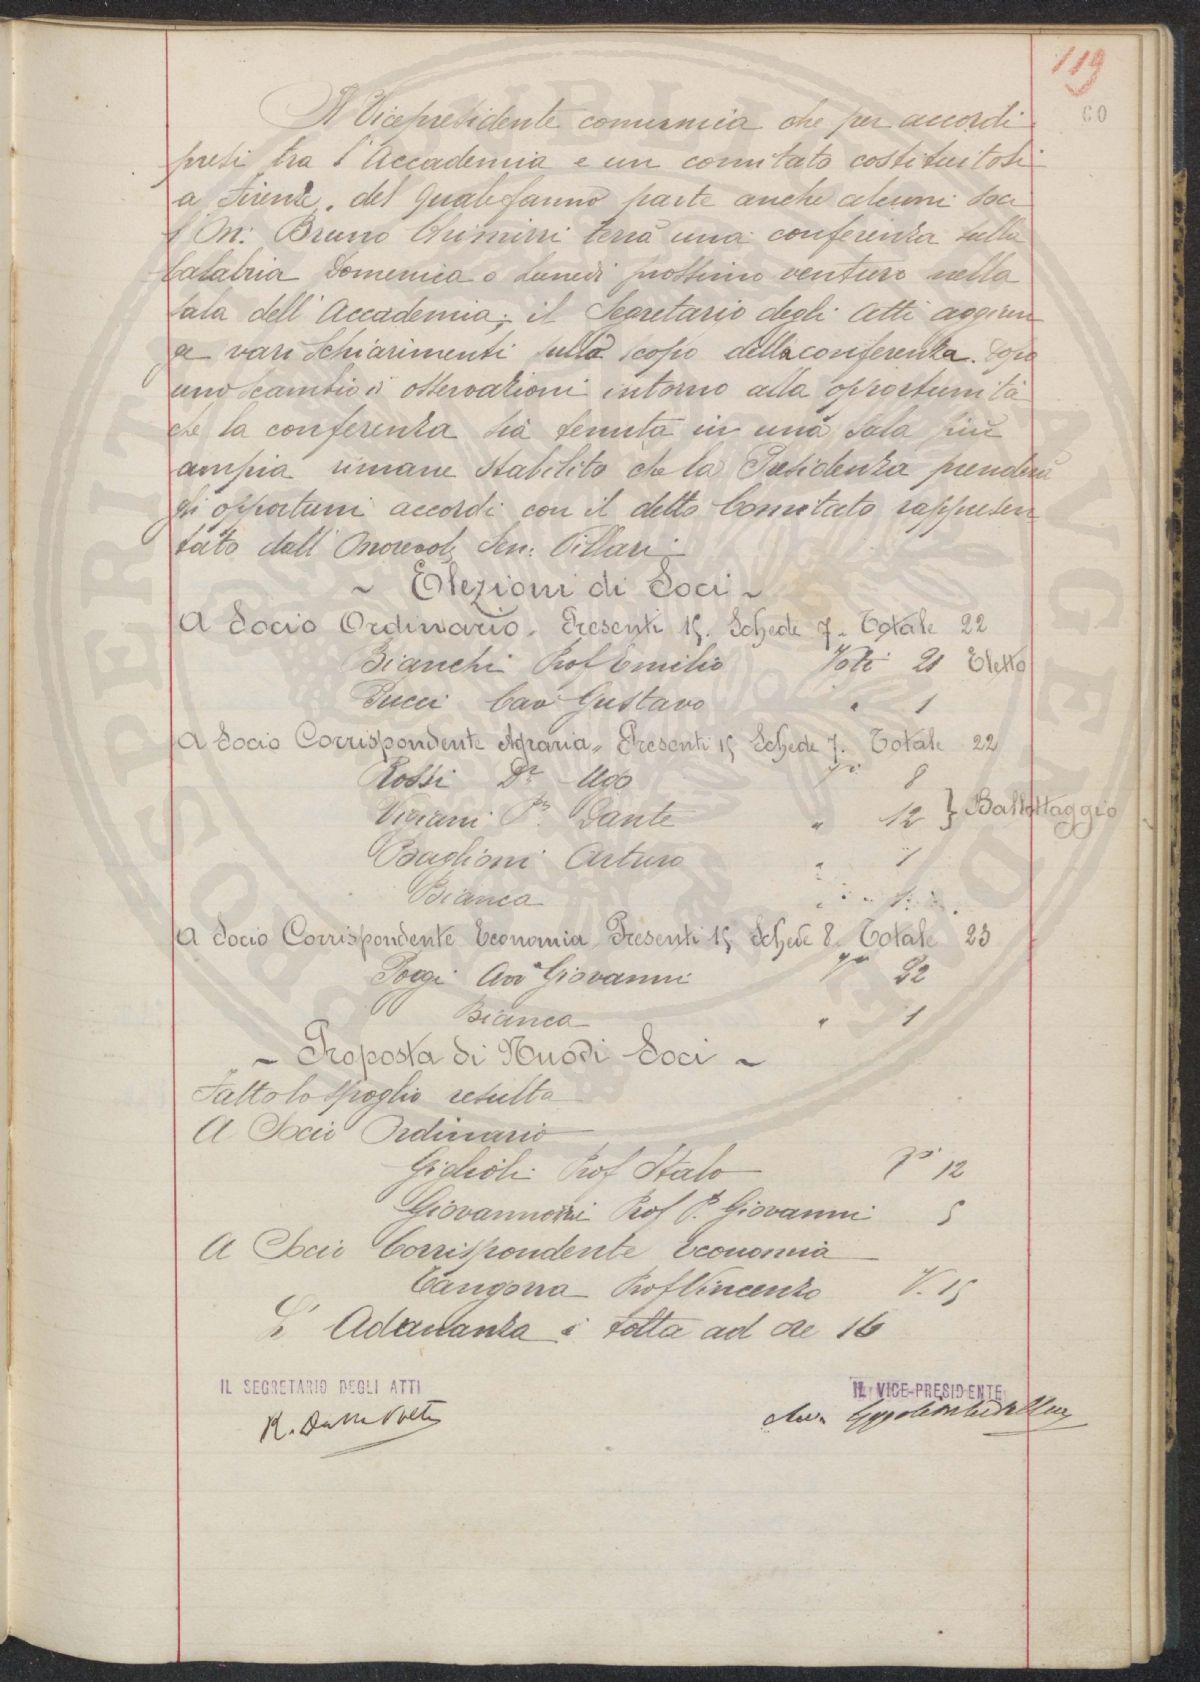 119
60
Il Vicepresidente comunica che per accordi
presi tra l'Accademia e un comitato costituitosi
a Firenze, del quale fanno parte anche alcuni soci
l'On: Bruno Chimirri terrà una conferenza sulla
Calabria Domenica o Lunedì prossimo venturo nella
sala dell'Accademia; il Segretario degli Atti aggiun
ge vari schiarimenti sullo scopo della conferenza. Dopo
uno scambio di osservazioni intorno alla opportunità
che la conferenza sia tenuta in una sala più
ampia rimane stabilito che la Presidenza prenderà
gli opportuni accordi con il detto Comitato rappresen
tato dall'Onorevole Sen: Villari.
~ Elezioni di Soci ~
A Socio Ordinario. Presenti 15. Schede 7. Totale 22
Bianchi Prof Emilio Voti 21 Eletto
Pucci Cav Gustavo " 1
A Socio Corrispondente Agraria. Presenti 15 Schede 7. Totale 22
Rossi Dr Ugo Vi 8
Viviani P. Dante " 12 } Ballottaggio
Baglioni Arturo " 1
Bianca " 1
A Socio Corrispondente Economia Presenti 15 Schede 8. Totale 23
Poggi Avv Giovanni Vi 22
Bianca " 1
~ Proposta di Nuovi Soci ~
Fatto lo spoglio resulta
A Socio Ordinario
Giglioli Prof Italo Vi 12
Giovannozzi Prof P. Giovanni 5
A Socio Corrispondente Economia
Tangorra Prof Vincenzo V. 15
L'Adunanza è tolta ad ore 16
IL SEGRETARIO DEGLI ATTI
IL VICE-PRESIDENTE
R. Dalla Volta